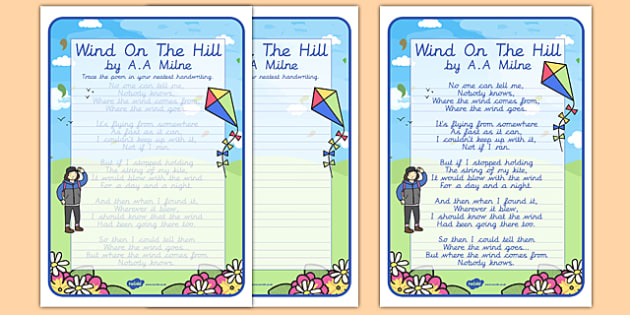 Wind On The Hill
by A.A Milne
Trace the poem in your neatest handwriting.
No one can tell me,
Nobody knows,
Where the wind comes from,
Where the wind goes.
It's flying from somewhere
As fast as it can,
I couldn't keep up with it,
Not if I ran.
But if I stopped holding
The string of my kite,
It would blow with the wind
For a day and a night.
And then when I found it,
Wherever it blew,
I should know that the wind
Had been going there too.
So then I could tell them
Where the wind goes...
But where the wind comes from
Nobody knows.
twinkl
The Hill
Milne
neatest handwriting.
twinkl
Wind On The Hill
by A.A Milne
No one can tell me,
Nobody knows,
Where the wind comes from,
Where the wind goes...
It's flying from somewhere
As fast as it can,
I couldn't keep up with it,
Not if I ran.
But if I stopped holding
The string of my kite,
It would blow with the wind
For a day and a night.
And then when I found it,
Wherever it blew,
I should know that the wind
Had been going there too.
So then I could tell them
Where the wind goes...
But where the wind comes from
Nobody knows.
twinkl